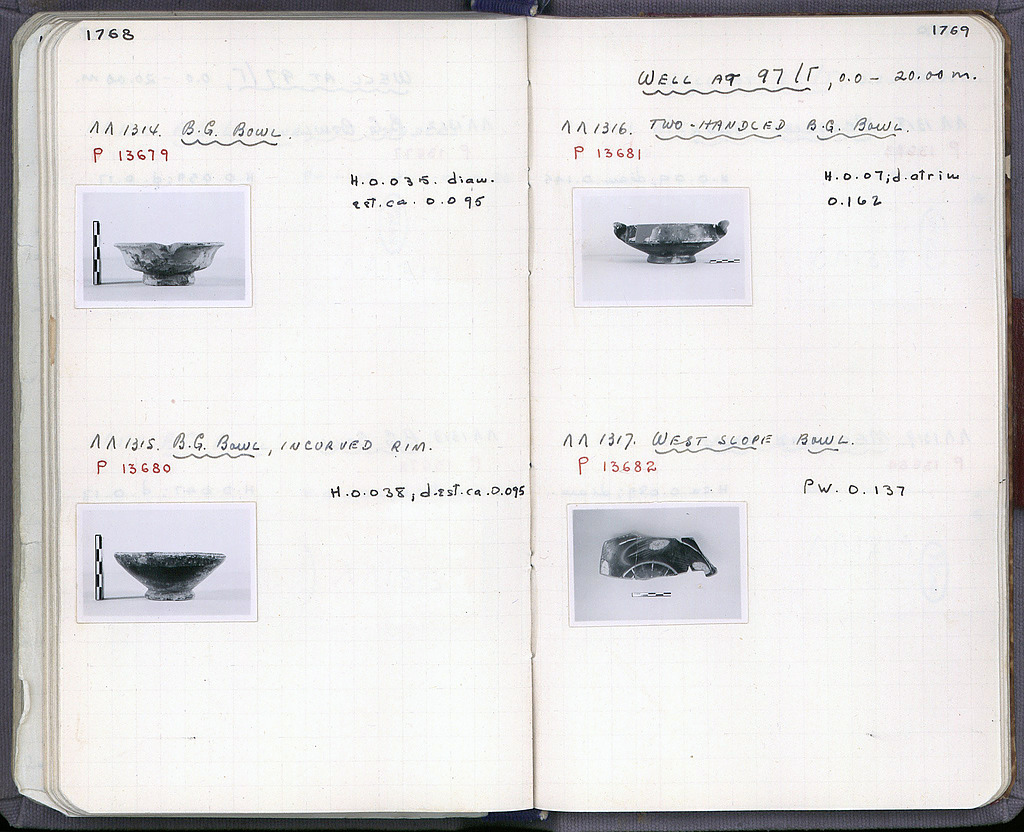 1768
ΛΛ 1314. B.G. BOWL.
P 13679
H.0.035. diam.
est.ca. 0.095
ΛΛ 1315. B.G. BOWL, INCURVED RIM.
P 13680
H.0.038; d.est.ca.0.095
1769
WELL AT 97/Γ, 0.0 – 20.00 m.
ΛΛ 1316. TWO-HANDLED B.G. BOWL.
P 13681
H.0.07; d.at rim
0.162
ΛΛ 1317. WEST SLOPE BOWL.
P 13682
PW. 0.137